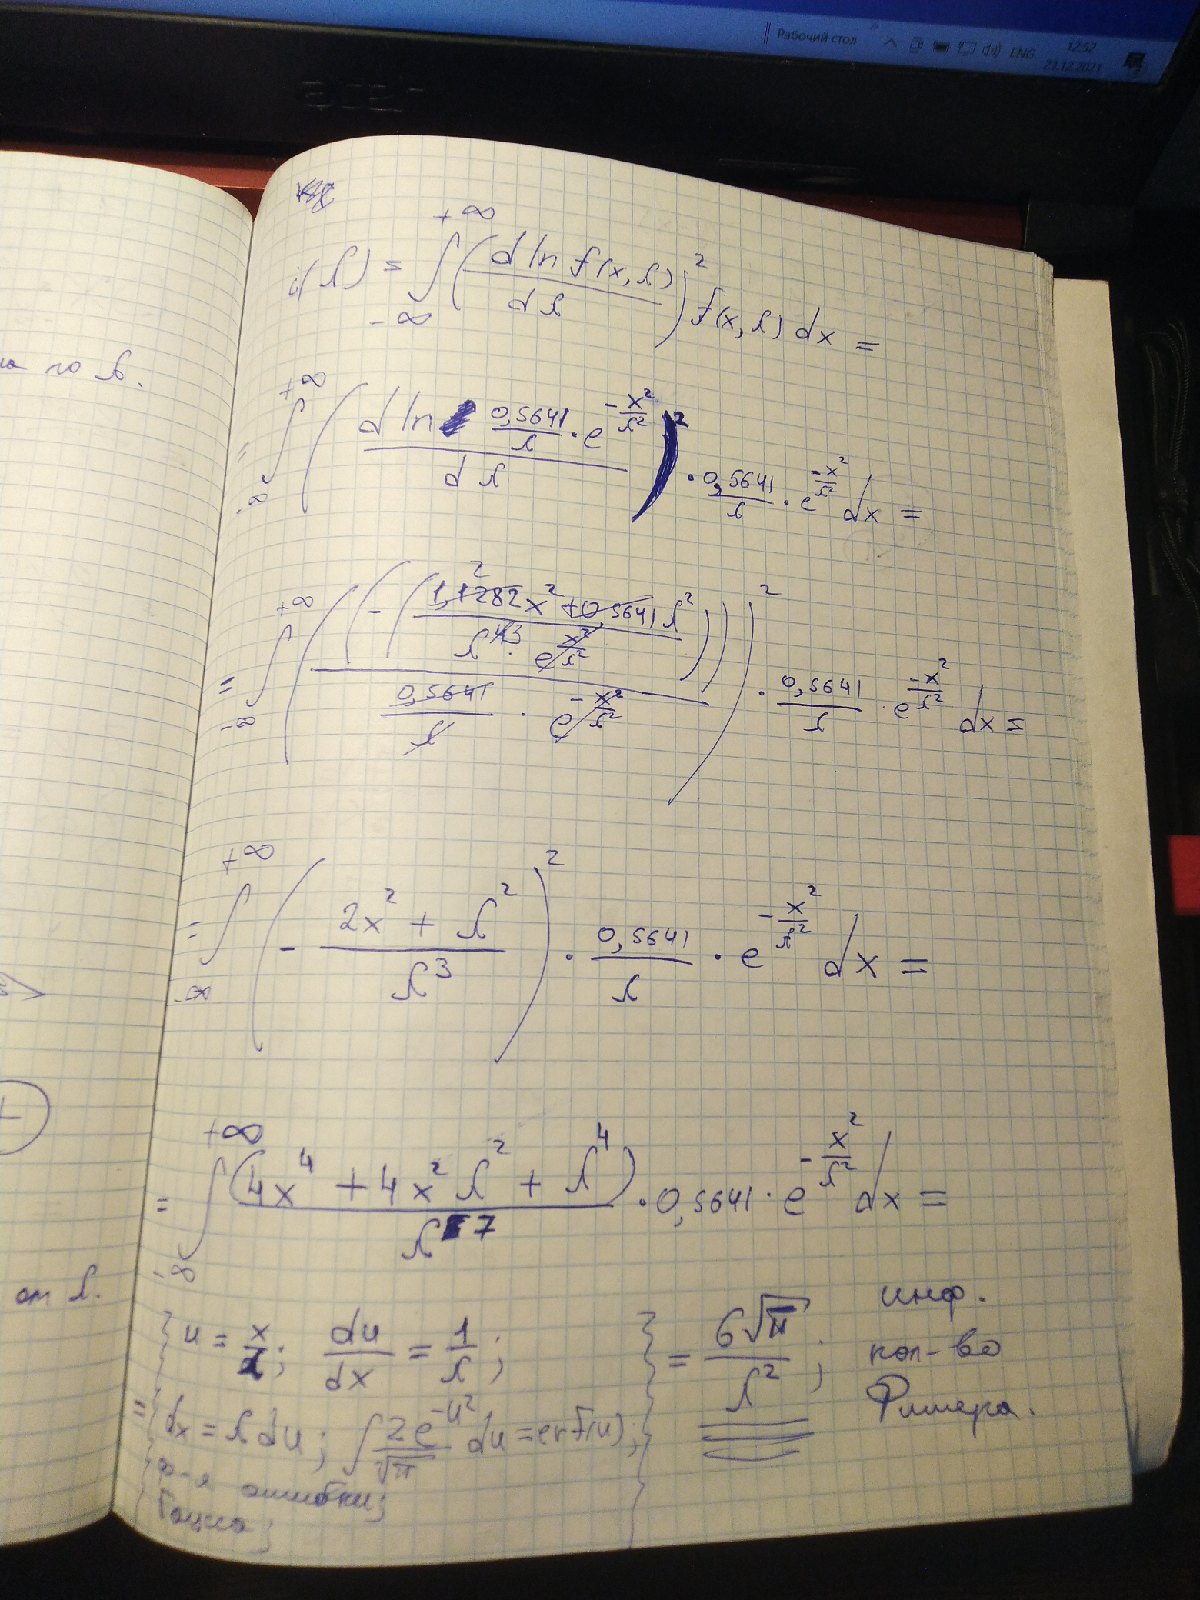 Рабочий стол
ENG
12:52
21.12.2021
acer
i(λ) = ∫_{-∞}^{+∞} (d ln f(x,λ) / dλ)² f(x,λ) dx =
по λ.
= ∫_{-∞}^{+∞} (d ln 0,5641/λ · e^{-x²/λ²} / dλ)² · 0,5641/λ · e^{-x²/λ²} dx =
= ∫_{-∞}^{+∞} ((-((1,1282x² + 0,5641λ²) / (λ³ · e^{x²/λ²}))) / (0,5641/λ · e^{-x²/λ²}))² · 0,5641/λ · e^{-x²/λ²} dx =
= ∫_{-∞}^{+∞} (- (2x² + λ²) / λ³)² · 0,5641/λ · e^{-x²/λ²} dx =
= ∫_{-∞}^{+∞} (4x⁴ + 4x²λ² + λ⁴) / λ⁷ · 0,5641 · e^{-x²/λ²} dx =
от λ.
= { u = x/λ; du/dx = 1/λ;
dx = λ du; ∫ 2e^{-u²}/√π du = erf(u);
ф-я ошибки;
Гаусса; } = 6√π / λ²;
инф.
кол-во
Фишера.